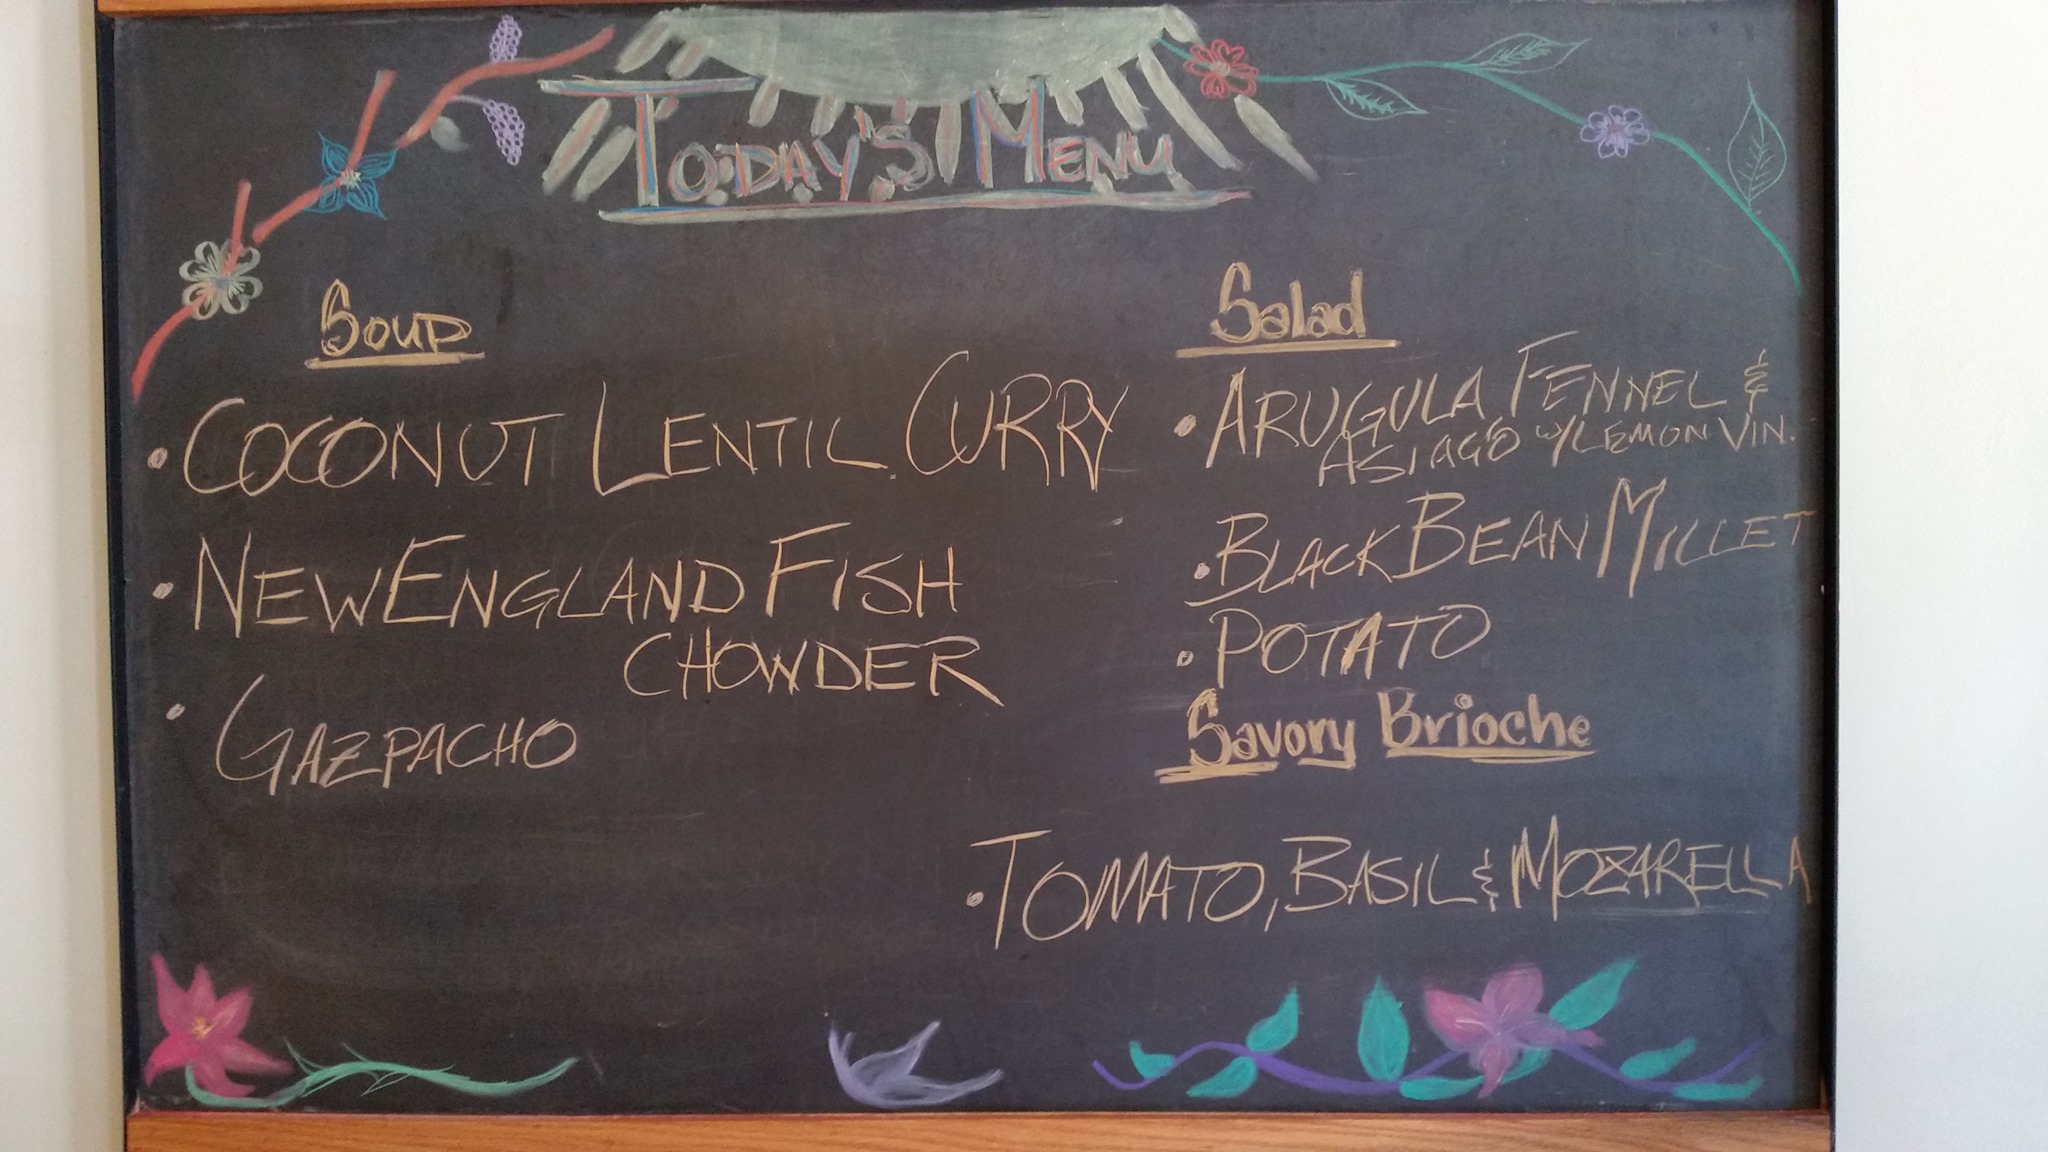 Today's Menu
Soup
• Coconut Lentil Curry
• New England Fish
Chowder
• Gazpacho
Salad
• Arugula Fennel &
Asiago w/ Lemon Vin.
• Black Bean Millet
• Potato
Savory Brioche
• Tomato, Basil & Mozarella